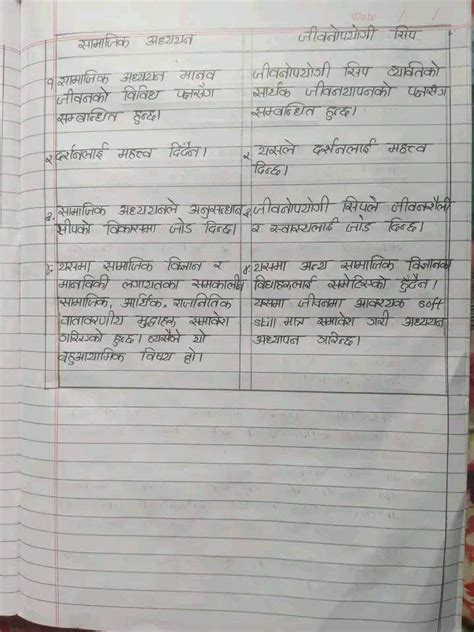 Date / /
सामाजिक अध्ययन
जीवनोपयोगी सिप
१ सामाजिक अध्ययन मानव
जीवनको विविध पक्षसँग
सम्बन्धित हुन्छ।
जीवनोपयोगी सिप व्यक्तिको
सार्थक जीवनयापनको पक्षसँग
सम्बन्धित हुन्छ।
२ दर्शनलाई महत्त्व दिँदैन।
२ यसले दर्शनलाई महत्त्व
दिन्छ।
३. सामाजिक अध्ययनले अनुसन्धान
सीपको विकासमा जोड दिन्छ।
३. जीवनोपयोगी सिपले जीवनशैली
र स्वास्थ्यलाई जोड दिन्छ।
४. यसमा सामाजिक विज्ञान र
मानविकी लगायतका समकालीन
सामाजिक, आर्थिक, राजनैतिक
वातावरणीय मुद्दाहरू समावेश
गरिएको हुन्छ। त्यसैले यो
बहुआयामिक विषय हो।
४. यसमा अन्य सामाजिक विज्ञानका
विधाहरूलाई समेटिएको हुँदैन।
यसमा जीवनमा आवश्यक soft
skill मात्र समावेश गरी अध्ययन
अध्यापन गरिन्छ।